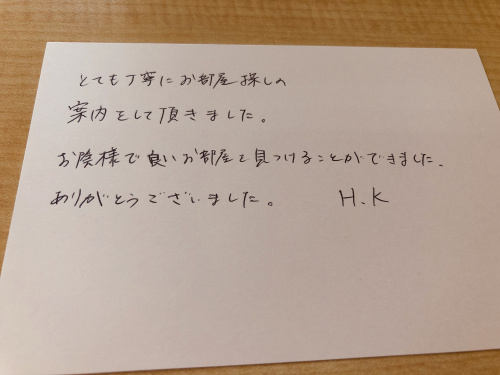 とても丁寧にお部屋探しの
案内をして頂きました。
お陰様で良いお部屋を見つけることができました.
ありがとうございました。 H.K